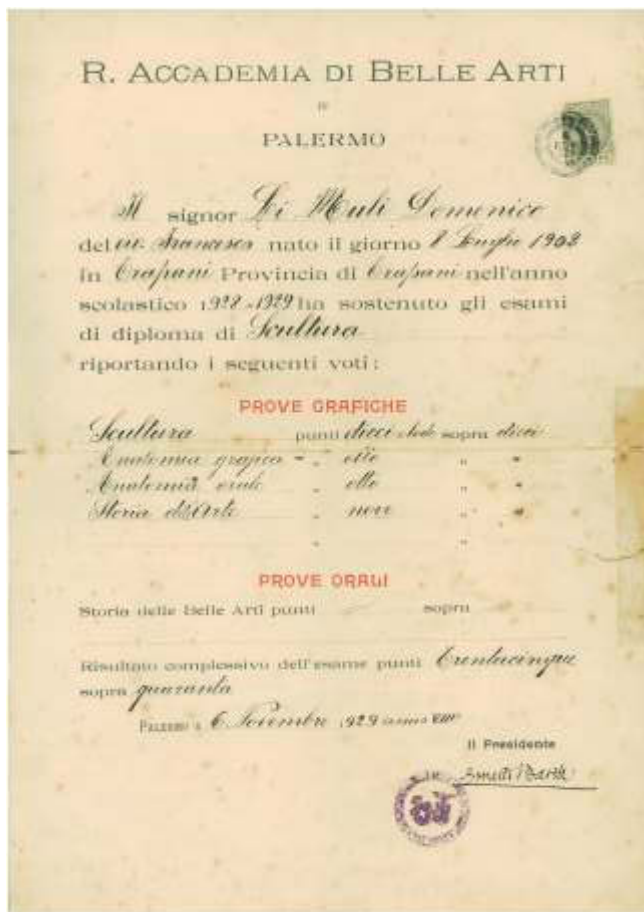 R. ACCADEMIA DI BELLE ARTI
DI
PALERMO
Il signor Li Muli Domenico
del cav. Francesco nato il giorno 8 Luglio 1902
in Trapani Provincia di Trapani nell'anno
scolastico 1928-1929 ha sostenuto gli esami
di diploma di Scultura
riportando i seguenti voti:
PROVE GRAFICHE
Scultura punti dieci e lode sopra dieci
Anatomia grafica " " otto " "
Anatomia orale " otto " "
Storia dell'Arte " nove " "
" "
PROVE ORALI
Storia delle Belle Arti punti sopra
Risultato complessivo dell'esame punti trentacinque
sopra quaranta
PALERMO 6 Novembre 1929 anno VIII
Il Presidente